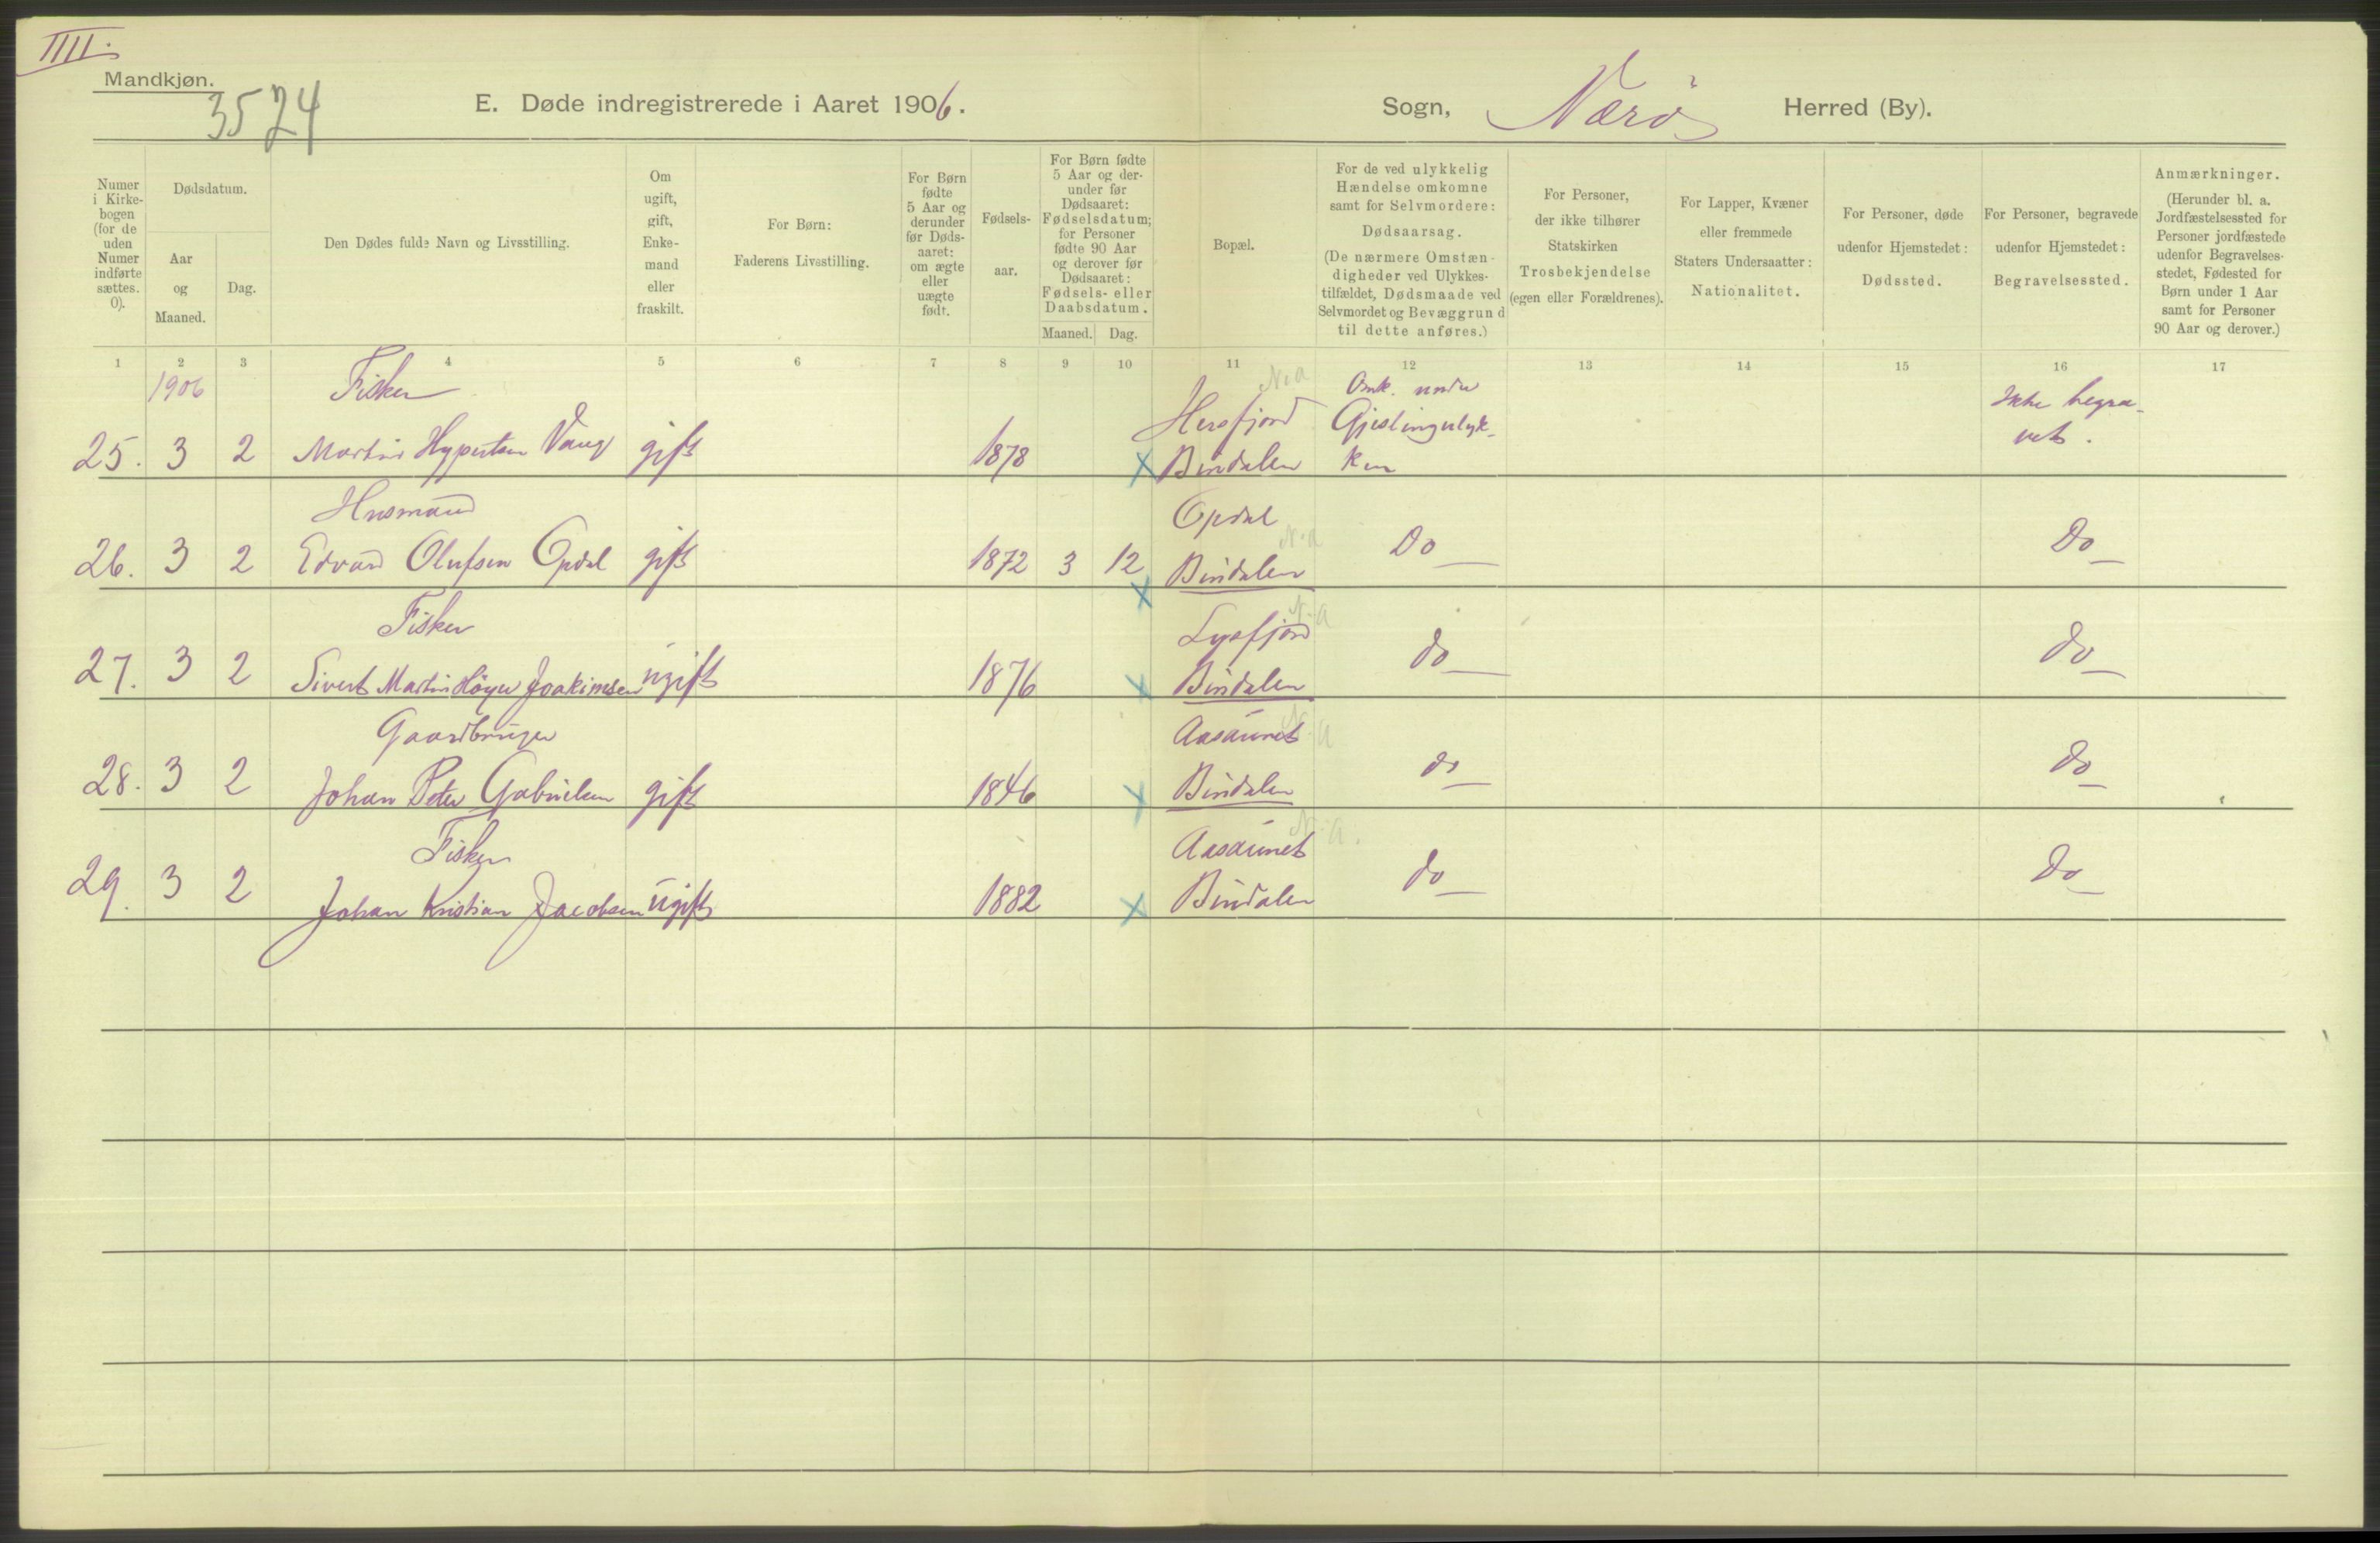 IIII.
Mandkjøn.
3524
E. Døde indregistrerede i Aaret 1906.
Sogn, Nærö Herred (By).
Numer i Kirke-bogen (for de uden Numer indførte sættes. 0).
Dødsdatum.
Aar og Maaned.
Dag.
Den Dødes fulde Navn og Livsstilling.
Om ugift, gift, Enke-mand eller fraskilt.
For Børn: Faderens Livsstilling.
For Børn fødte 5 Aar og derunder før Døds-aaret: om ægte eller uægte født.
Fødsels-aar.
For Børn fødte 5 Aar og der-under før Dødsaaret: Fødselsdatum; for Personer fødte 90 Aar og derover før Dødsaaret: Fødsels- eller Daabsdatum.
Maaned. Dag.
Bopæl.
For de ved ulykkelig Hændelse omkomne samt for Selvmordere: Dødsaarsag. (De nærmere Omstæn-digheder ved Ulykkes-tilfældet, Dødsmaade ved Selvmordet og Bevæggrund til dette anføres.)
For Personer, der ikke tilhører Statskirken Trosbekjendelse (egen eller Forældrenes).
For Lapper, Kvæner eller fremmede Staters Undersaatter: Nationalitet.
For Personer, døde udenfor Hjemstedet: Dødssted.
For Personer, begravede udenfor Hjemstedet: Begravelsessted.
Anmærkninger. (Herunder bl. a. Jordfæstelsessted for Personer jordfæstede udenfor Begravelses-stedet, Fødested for Børn under 1 Aar samt for Personer 90 Aar og derover.)
1 2 3 4 5 6 7 8 9 10 11 12 13 14 15 16 17
1906 Fisker N.a Omk. under Ikke begra-
Gjeslingulyk- vet.
25. 3 2 Martin Vang gift 1878 x Bindalen ken
Husmand Opdal N.a
26. 3 2 Edvard Olufsen Opdal gift 1872 3 12 x Bindalen Do Do
Fisker N.a
27. 3 2 Sivert Martin Höyer Joakimsen ugift 1876 x Bindalen do do
Gaardbruger Aasaunet N.a
28. 3 2 Johan Peter Gabrielsen gift 1846 x Bindalen do do
Fisker Aasaunet N.a.
29. 3 2 Johan Kristian Jacobsen ugift 1882 x Bindalen do Do